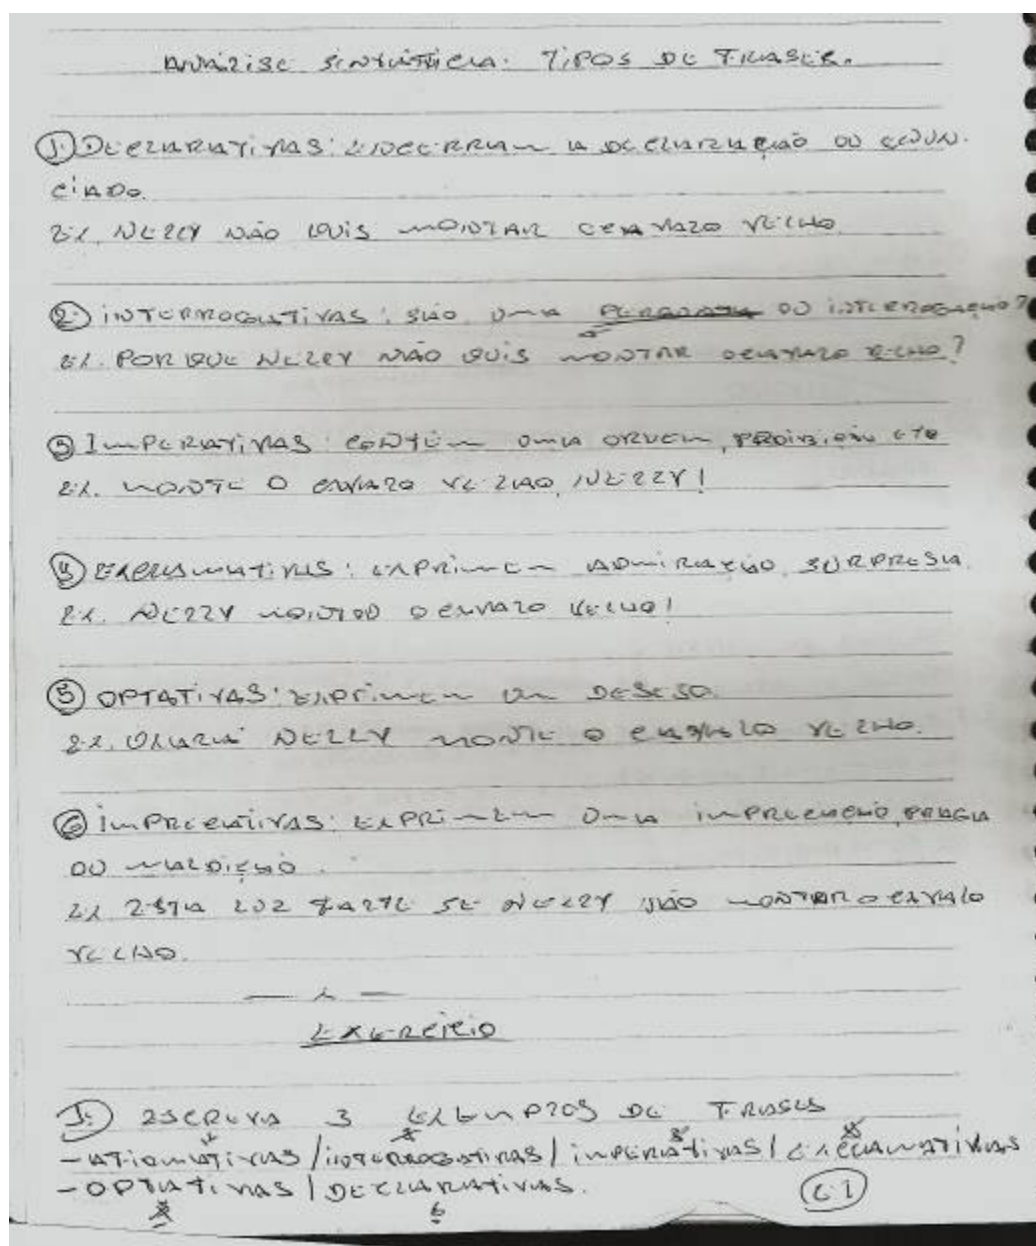 ANÁLISE SINTÁTICA: TIPOS DE FRASES.
1. DECLARATIVAS: ENCERRAM A DECLARAÇÃO OU ENUN-
CIADO.
EX. NELLY NÃO QUIS MONTAR CAVALO VELHO.
2. INTERROGATIVAS: SÃO UMA PERGUNTA OU INTERROGAÇÃO?
EX. POR QUE NELLY NÃO QUIS MONTAR O CAVALO VELHO?
3 IMPERATIVAS: CONTÉM UMA ORDEM, PROIBIÇÃO ETC
EX. MONTE O CAVALO VELHO, NELLY!
4. EXCLAMATIVAS: EXPRIMEM ADMIRAÇÃO, SURPRESA.
EX. NELLY MONTOU O CAVALO VELHO!
5 OPTATIVAS: EXPRIMEM UM DESEJO.
EX. NELLY MONTE O CAVALO VELHO.
6 IMPRECATIVAS: EXPRIMEM UMA IMPRECAÇÃO, PRAGA
OU MALDIÇÃO.
EX ESTA LUZ FALTE SE NELLY NÃO MONTAR O CAVALO
VELHO.
— x —
EXERCÍCIO
1. ESCREVA 3 EXEMPLOS DE FRASES
- AFIRMATIVAS / INTERROGATIVAS / IMPERATIVAS / EXCLAMATIVAS
- OPTATIVAS / DECLARATIVAS.